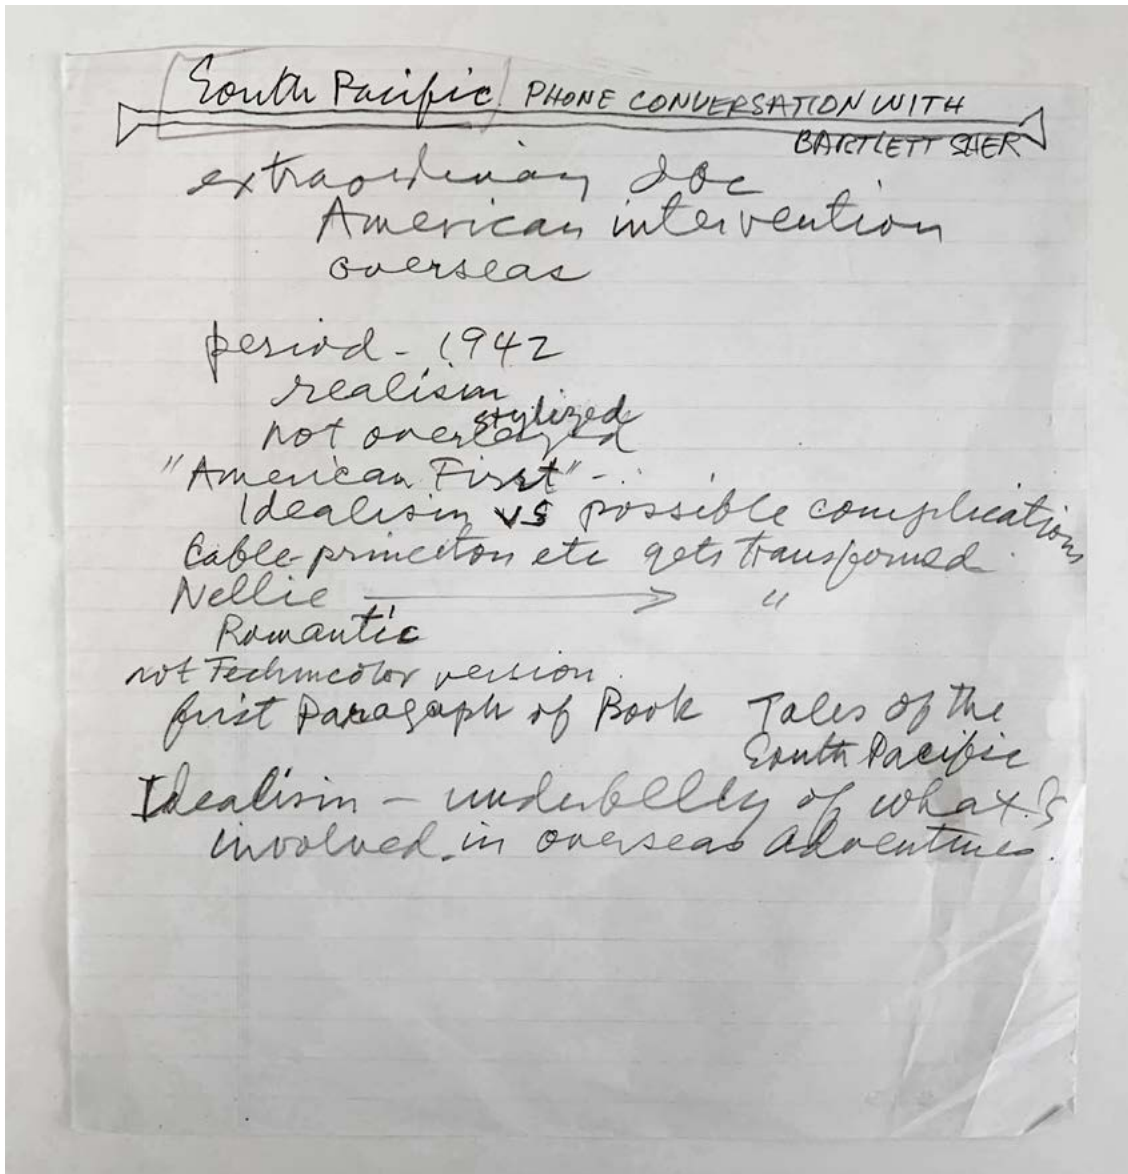 South Pacific PHONE CONVERSATION WITH
BARTLETT SHER
extraordinary doc
American intervention
overseas
period - 1942
realism
not over stylized
"American First" -
Idealism vs possible complications
Cable-princeton etc gets transformed
Nellie → "
Romantic
not Technicolor version
first Paragraph of Book Tales of the
South Pacific
Idealism - underbelly of what's
involved in overseas adventures.